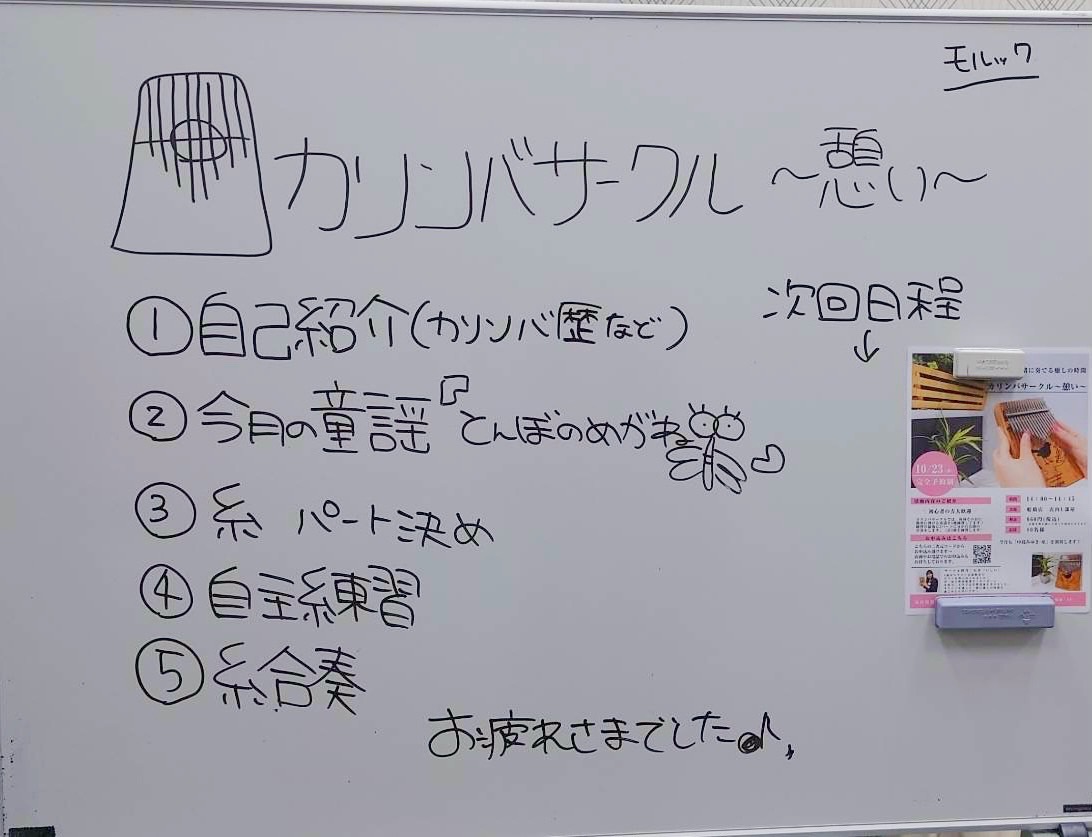 モルック
カリンバサークル 〜憩い〜
① 自己紹介(カリンバ歴など)
② 今月の童謡『とんぼのめがね』
③ 糸 パート決め
④ 自主練習
⑤ 糸合奏
お疲れさまでした♪
次回日程
↓
緒に奏でる癒しの時間
カリンバサークル〜憩い〜
10/23
完全予約制